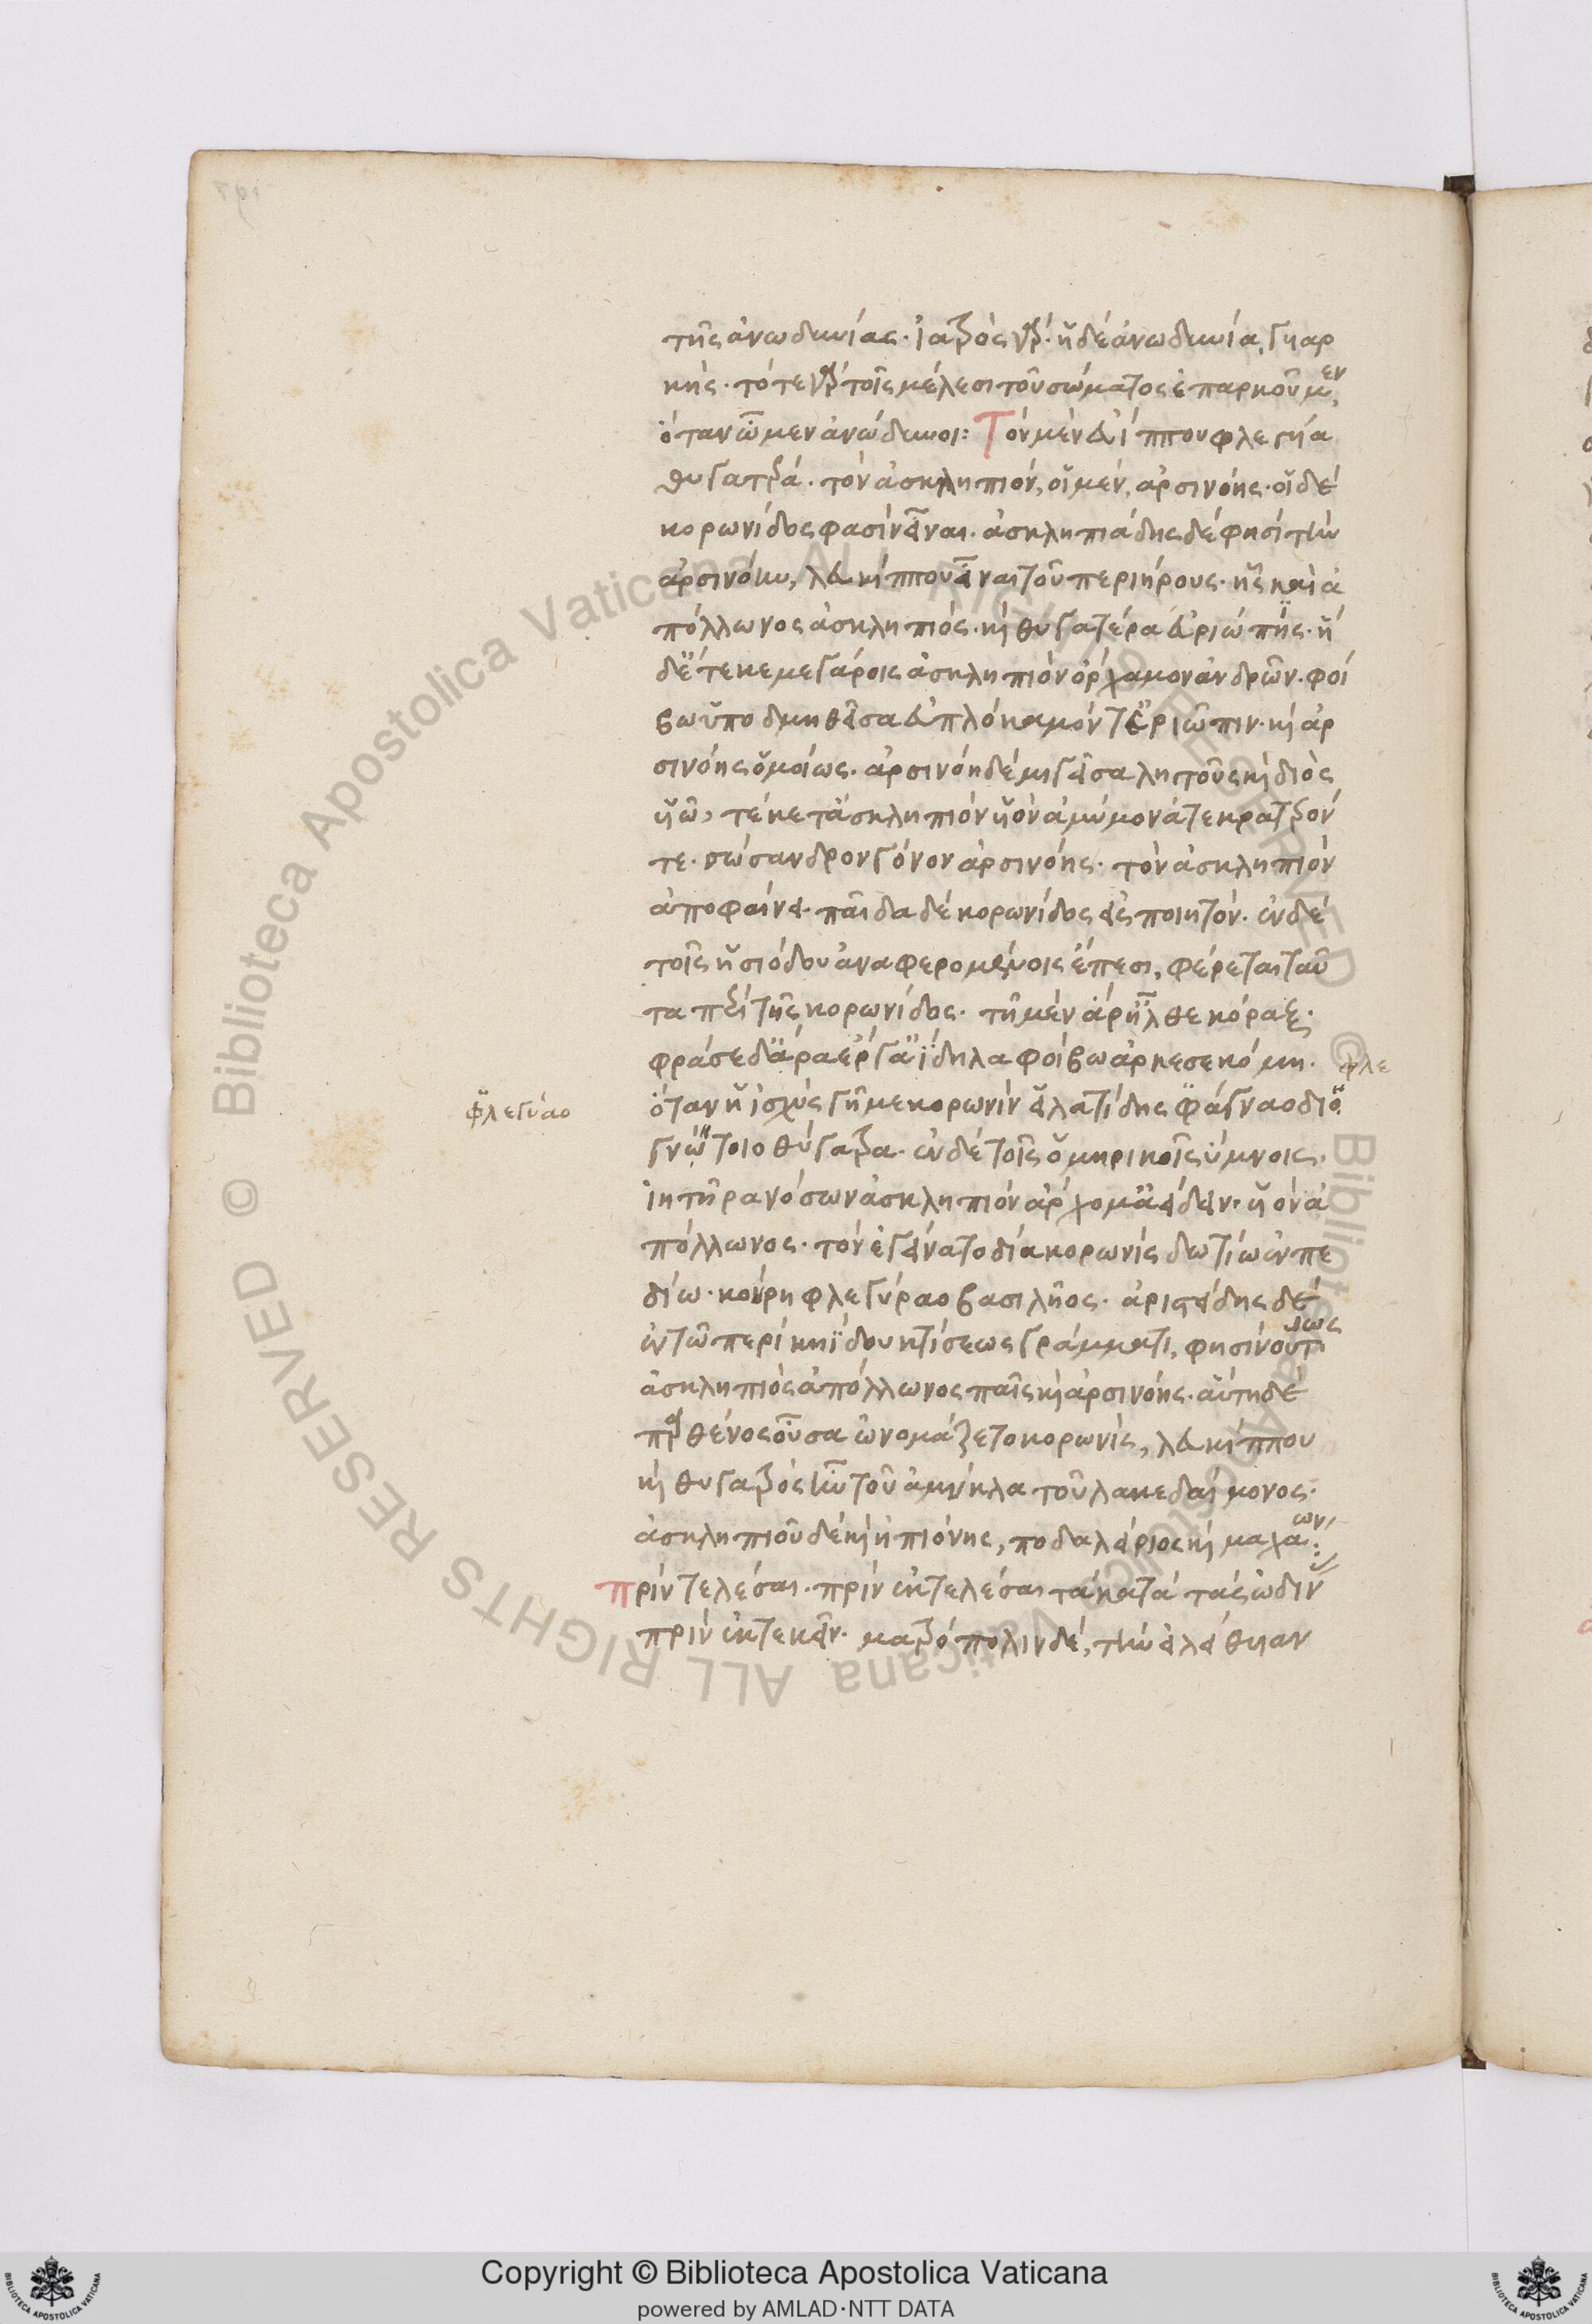 τῆς ἀνωδυνίας· ἰατρὸς γάρ· ἡ δὲ ἀνωδυνία, γυιαρ
κής· τότε γὰρ τοῖς μέλεσι τοῦ σώματος ἐπαρκοῦμεν,
ὅταν ὦμεν ἀνώδυνοι: Τὸν μὲν εὐίππου φλεγύα
θυγάτρα· τὸν ἀσκληπιόν, οἱ μέν, ἀρσινόης· οἱ δὲ
κορωνίδος φασὶν εἶναι· ἀσκληπιάδης δέ φησί τὴν
ἀρσινόην, λευκίππου εἶναι τοῦ περιήρους· ἧς καὶ ἀ
πόλλωνος ἀσκληπιός· κὶ θυγατέρα ἐριώπης· ἡ
δ' ἔτεκε μεγάροις ἀσκληπιὸν ὄρχαμον ἀνδρῶν· φοί
βω ὑποδμηθεῖσα εὐπλόκαμόν τ' ἐριῶπιν· κὶ ἀρ
σινόης ὁμοίως· ἀρσινόη δὲ μιγεῖσα λητοῦς κὶ διὸς
υἱῶ, τέκετ' ἀσκληπιὸν υἱὸν ἀμύμονά τε κρατερόν
τε· σώσανδρον γόνον ἀρσινόης· τὸν ἀσκληπιὸν
ἀποφαίνει· παῖδα δὲ κορωνίδος εἰσποιητόν· ἐν δὲ
τοῖς ἡσιόδου ἀναφερομένοις ἔπεσι, φέρεται ταῦ
τα περὶ τῆς κορωνίδος· τῆ μὲν ἄρ' ἦλθε κόραξ·
φράσε δ' ἄρα ἔργ' ἀΐδηλα φοίβω ἀκερσεκόμη· φλε
ὅταν ἡ ἰσχὺς γῆμε κορωνὶν εἰλατίδης
φλεγύαο
γνώτοιο θύγατρα· ἐν δὲ τοῖς ὁμηρικοῖς ὕμνοις·
ἰητῆρα νόσων ἀσκληπιὸν ἄρχομ' ἀείδειν· υἱὸν ἀ
πόλλωνος· τὸν ἐγείνατο δῖα κορωνὶς δωτίω ἐν πε
δίω· κούρη φλεγύραο βασιλῆος· ἀριστείδης δὲ
ἐν τῶ περὶ κνίδου κτίσεως γράμματι, φησὶν οὕτως
ἀσκληπιὸς ἀπόλλωνος παῖς κὶ ἀρσινόης· αὕτη δὲ
παρθένος οὖσα ὠνομάζετο κορωνίς, λευκίππου
κὶ θυγατρὸς ἦν τοῦ ἀμύκλα τοῦ λακεδαίμονος·
ἀσκληπιοῦ δὲ κὶ ἠπιόνης, ποδαλείριος κὶ μαχάων:
πρὶν τελέσαι· πρὶν ἐκτελέσαι τὰ κατὰ τὰς ὠδῖν
πρὶν ἐκτεκεῖν· ματρόπολιν δέ, τὴν εἰλείθυιαν